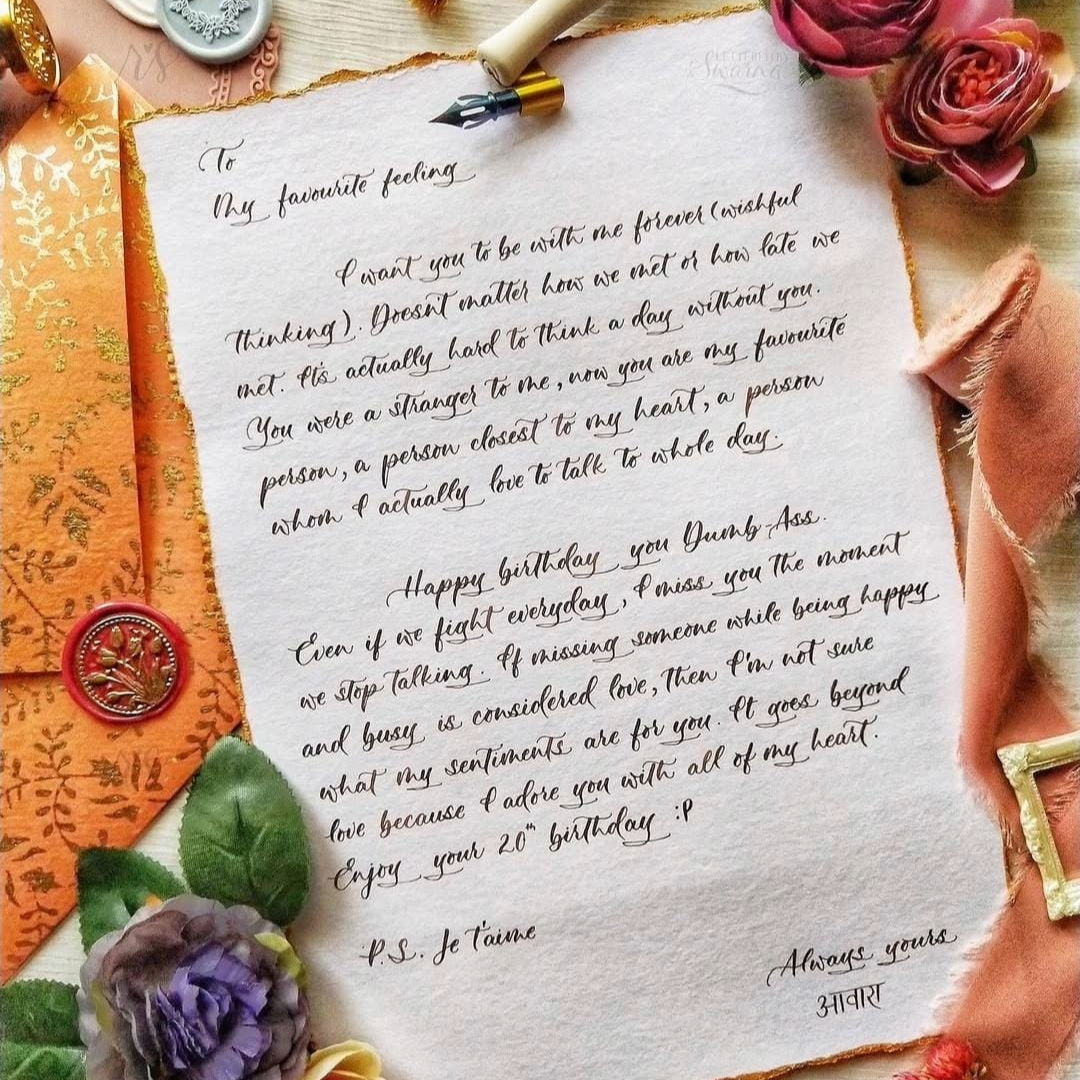 To
My favourite feeling
I want you to be with me forever (wishful
thinking). Doesn't matter how we met or how late we
met. It's actually hard to think a day without you.
You were a stranger to me, now you are my favourite
person, a person closest to my heart, a person
whom I actually love to talk to whole day.
Happy birthday you Dumb-Ass.
Even if we fight everyday, I miss you the moment
we stop talking. If missing someone while being happy
and busy is considered love, then I'm not sure
what my sentiments are for you. It goes beyond
love because I adore you with all of my heart.
Enjoy your 20th birthday :P
P.S. Je t'aime
Always yours
आवारा